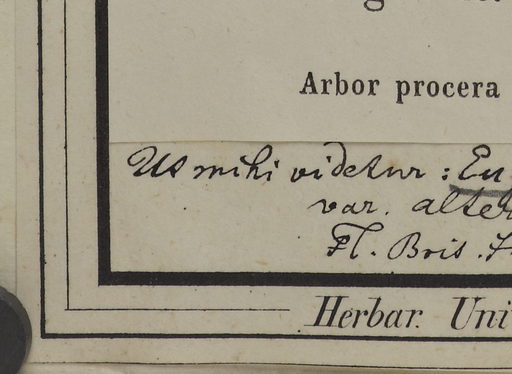 Arbor procera
Ut mihi videtur : Eu
var. alter
Fl. Bris.
Herbar. Uni